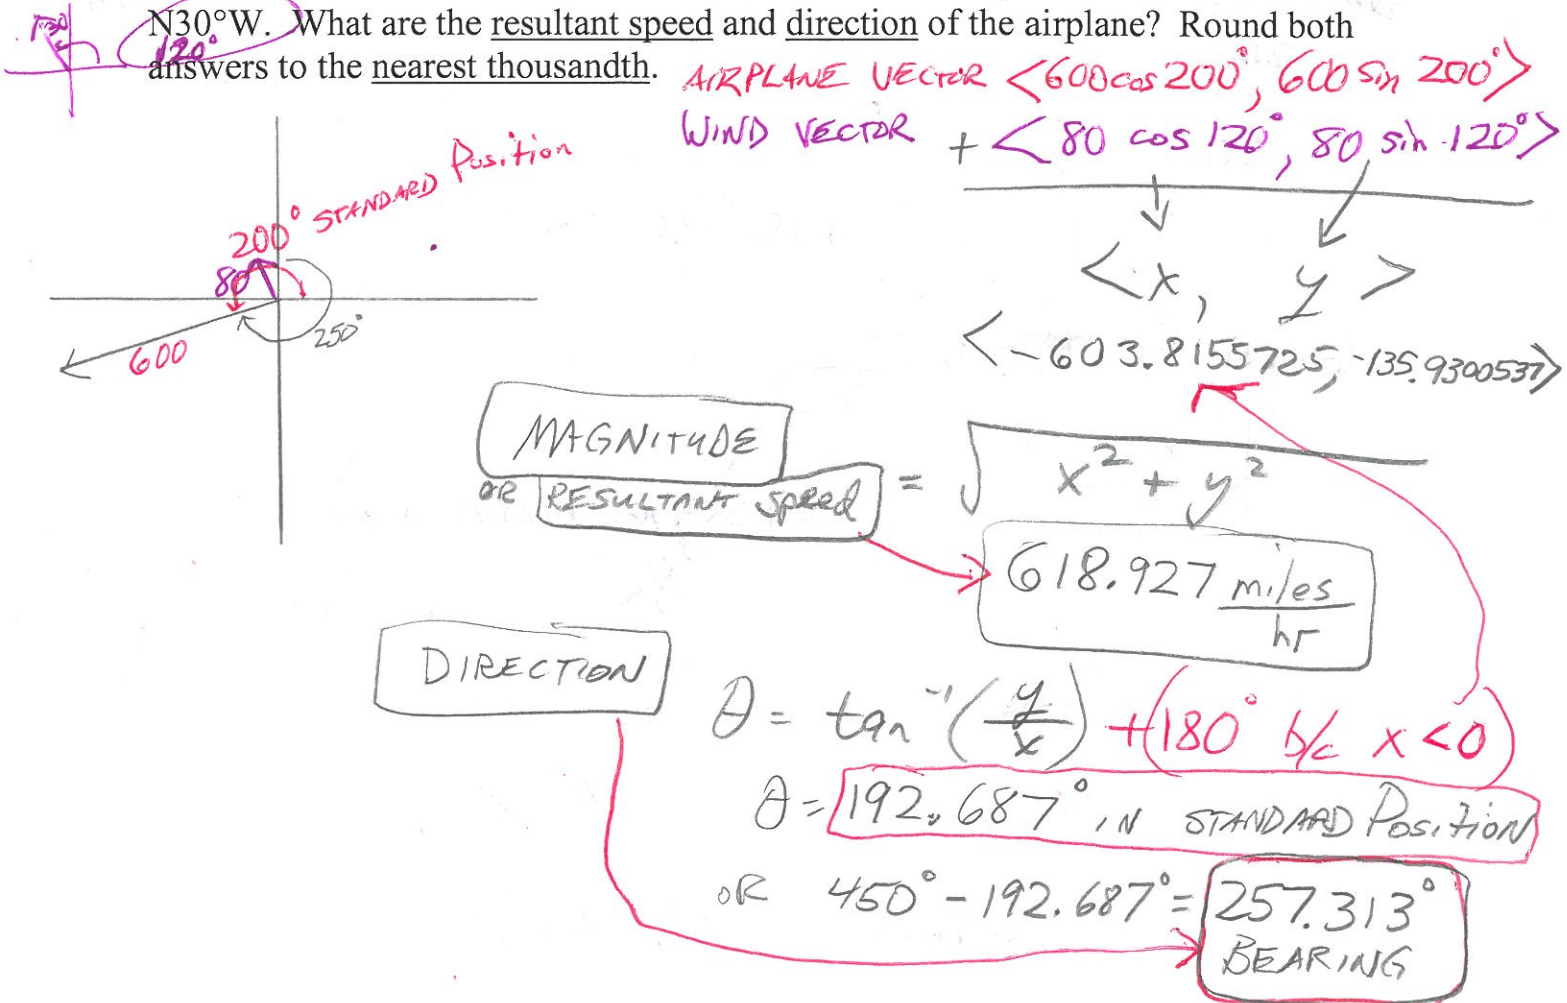 N30°W. What are the resultant speed and direction of the airplane? Round both
120°
answers to the nearest thousandth.
AIRPLANE VECTOR <600cos 200°, 600 sin 200°>
WIND VECTOR + <80 cos 120°, 80 sin 120°>
200° STANDARD Position
80
250°
600
<x, y>
<-603.8155725, -135.9300537>
MAGNITUDE
OR RESULTANT Speed = √x² + y²
618.927 miles/hr
DIRECTION
θ = tan⁻¹(y/x) + (180° b/c x<0)
θ = 192.687° IN STANDARD Position
OR 450° - 192.687° = 257.313°
BEARING